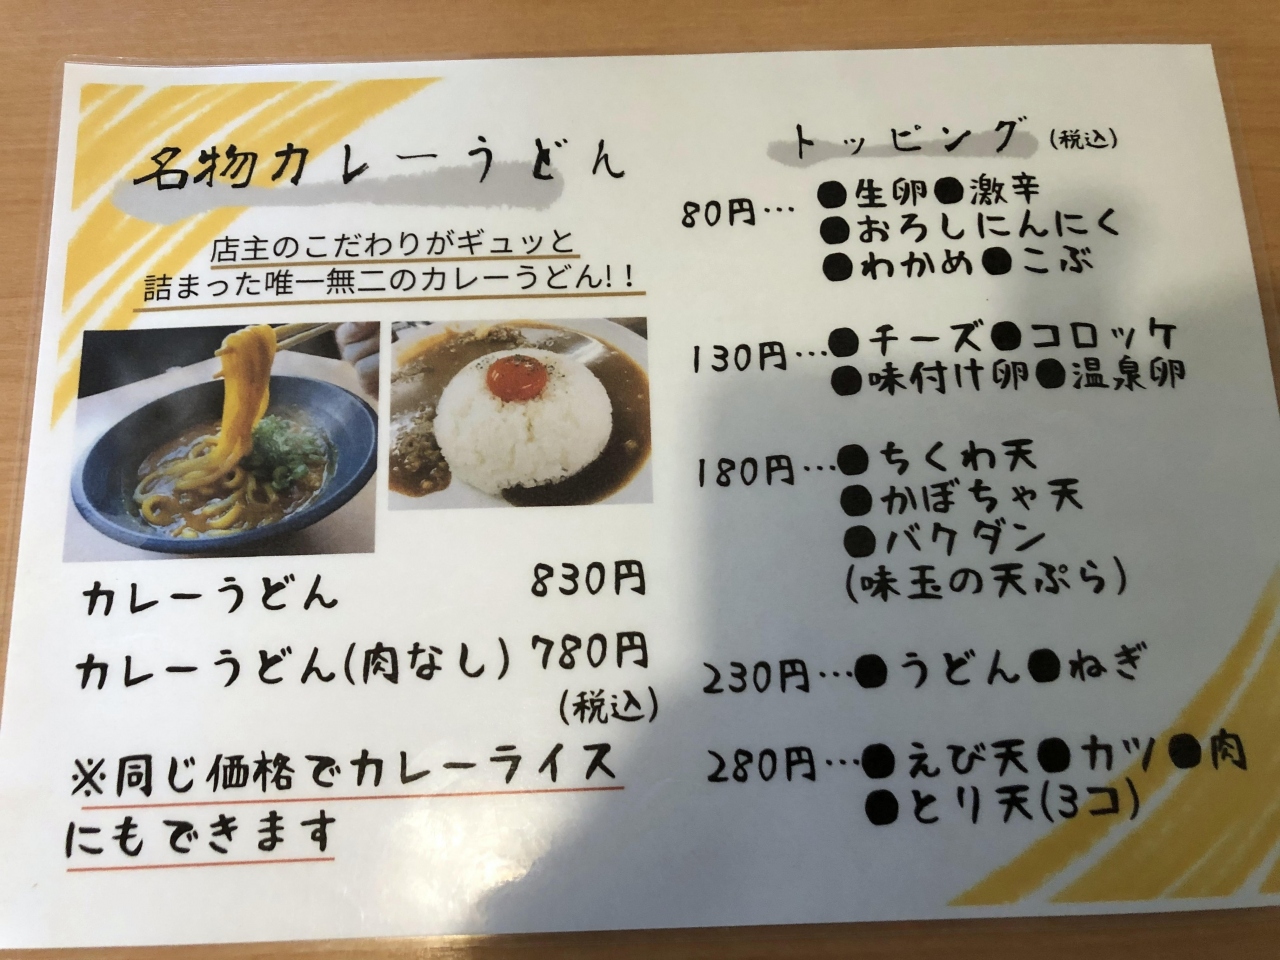 名物カレーうどん
店主のこだわりがギュッと
詰まった唯一無二のカレーうどん!!
カレーうどん 830円
カレーうどん(肉なし) 780円
(税込)
※同じ価格でカレーライス
にもできます
トッピング (税込)
80円…●生卵●激辛
●おろしにんにく
●わかめ●こぶ
130円…●チーズ●コロッケ
●味付け卵●温泉卵
180円…●ちくわ天
●かぼちゃ天
●バクダン
(味玉の天ぷら)
230円…●うどん●ねぎ
280円…●えび天●カツ●肉
●とり天(3コ)